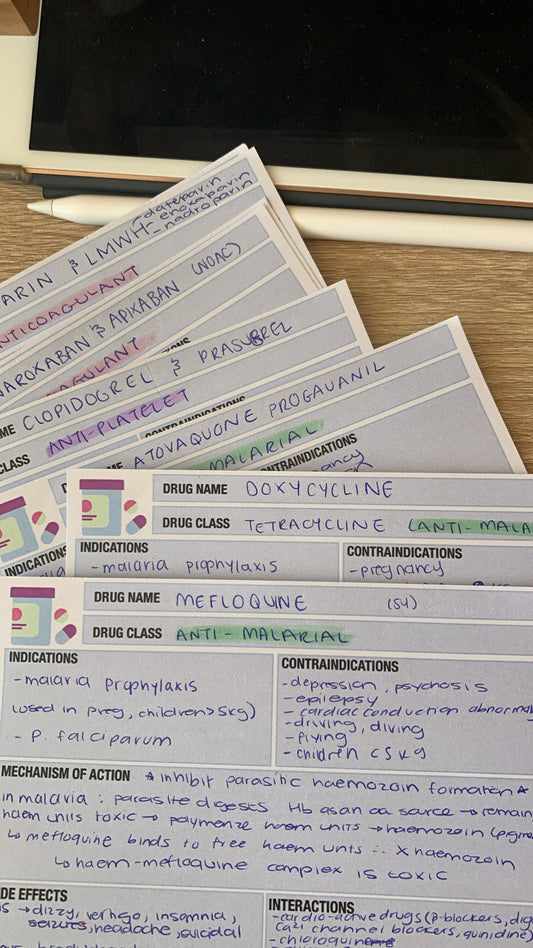 -dalteparin
-enoxaparin
-nadroparin
ARIN & LMWH
NTICOAGULANT
VAROXABAN & APIXABAN (NOAC)
AGULANT
ME CLOPIDOGREL & PRASUGREL
CLASS ANTI-PLATELET
CONTRAINDICATIONS
ME ATOVAQUONE PROGAUANIL
MALARIAL
NTRAINDICATIONS
nancy
INDICATIONS
DRUG NAME DOXYCYCLINE
DRUG CLASS TETRACYCLINE (ANTI-MALA
INDICATIONS
-malaria prophylaxis
CONTRAINDICATIONS
-pregnancy
DRUG NAME MEFLOQUINE (S4)
DRUG CLASS ANTI-MALARIAL
INDICATIONS
-malaria prophylaxis
(used in preg, children>5kg)
- P. falciparum
CONTRAINDICATIONS
-depression, psychosis
-epilepsy
-cardiac conduction abnormal
-driving, diving
-flying
-children <5kg
MECHANISM OF ACTION * inhibit parasitic haemozoin formation *
in malaria: parasite digests Hb as an aa source → remain
haem units toxic → polymerize haem units → haemozoin (pigme
↳ mefloquine binds to free haem units ∴ X haemozoin
↳ haem-mefloquine complex is toxic
DE EFFECTS
S → dizzy, vertigo, insomnia,
seizures, headache, suicidal
INTERACTIONS
-cardio-active drugs (β-blockers, dig
Ca2+ channel blockers, qunidine)
-chloroquine